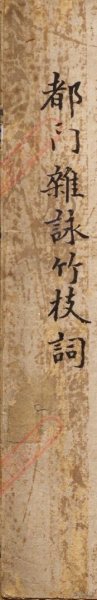 都门雜詠竹枝詞